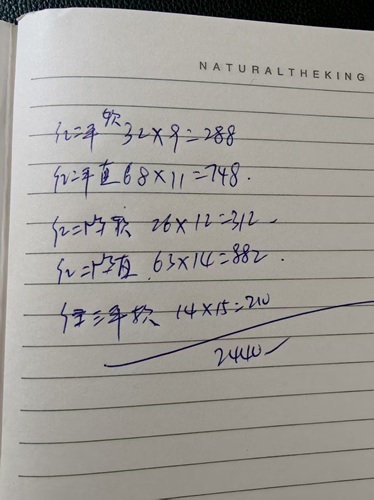 NATURALTHEKING
红二平软 32×9=288
红二平直 68×11=748.
红二内软 26×12=312
红二内直 63×14=882.
三平软 14×15=210
2440